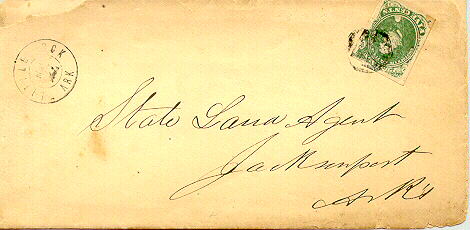 LITTLE ROCK
ARK
State Land Agent
Jacksonport
Ark's